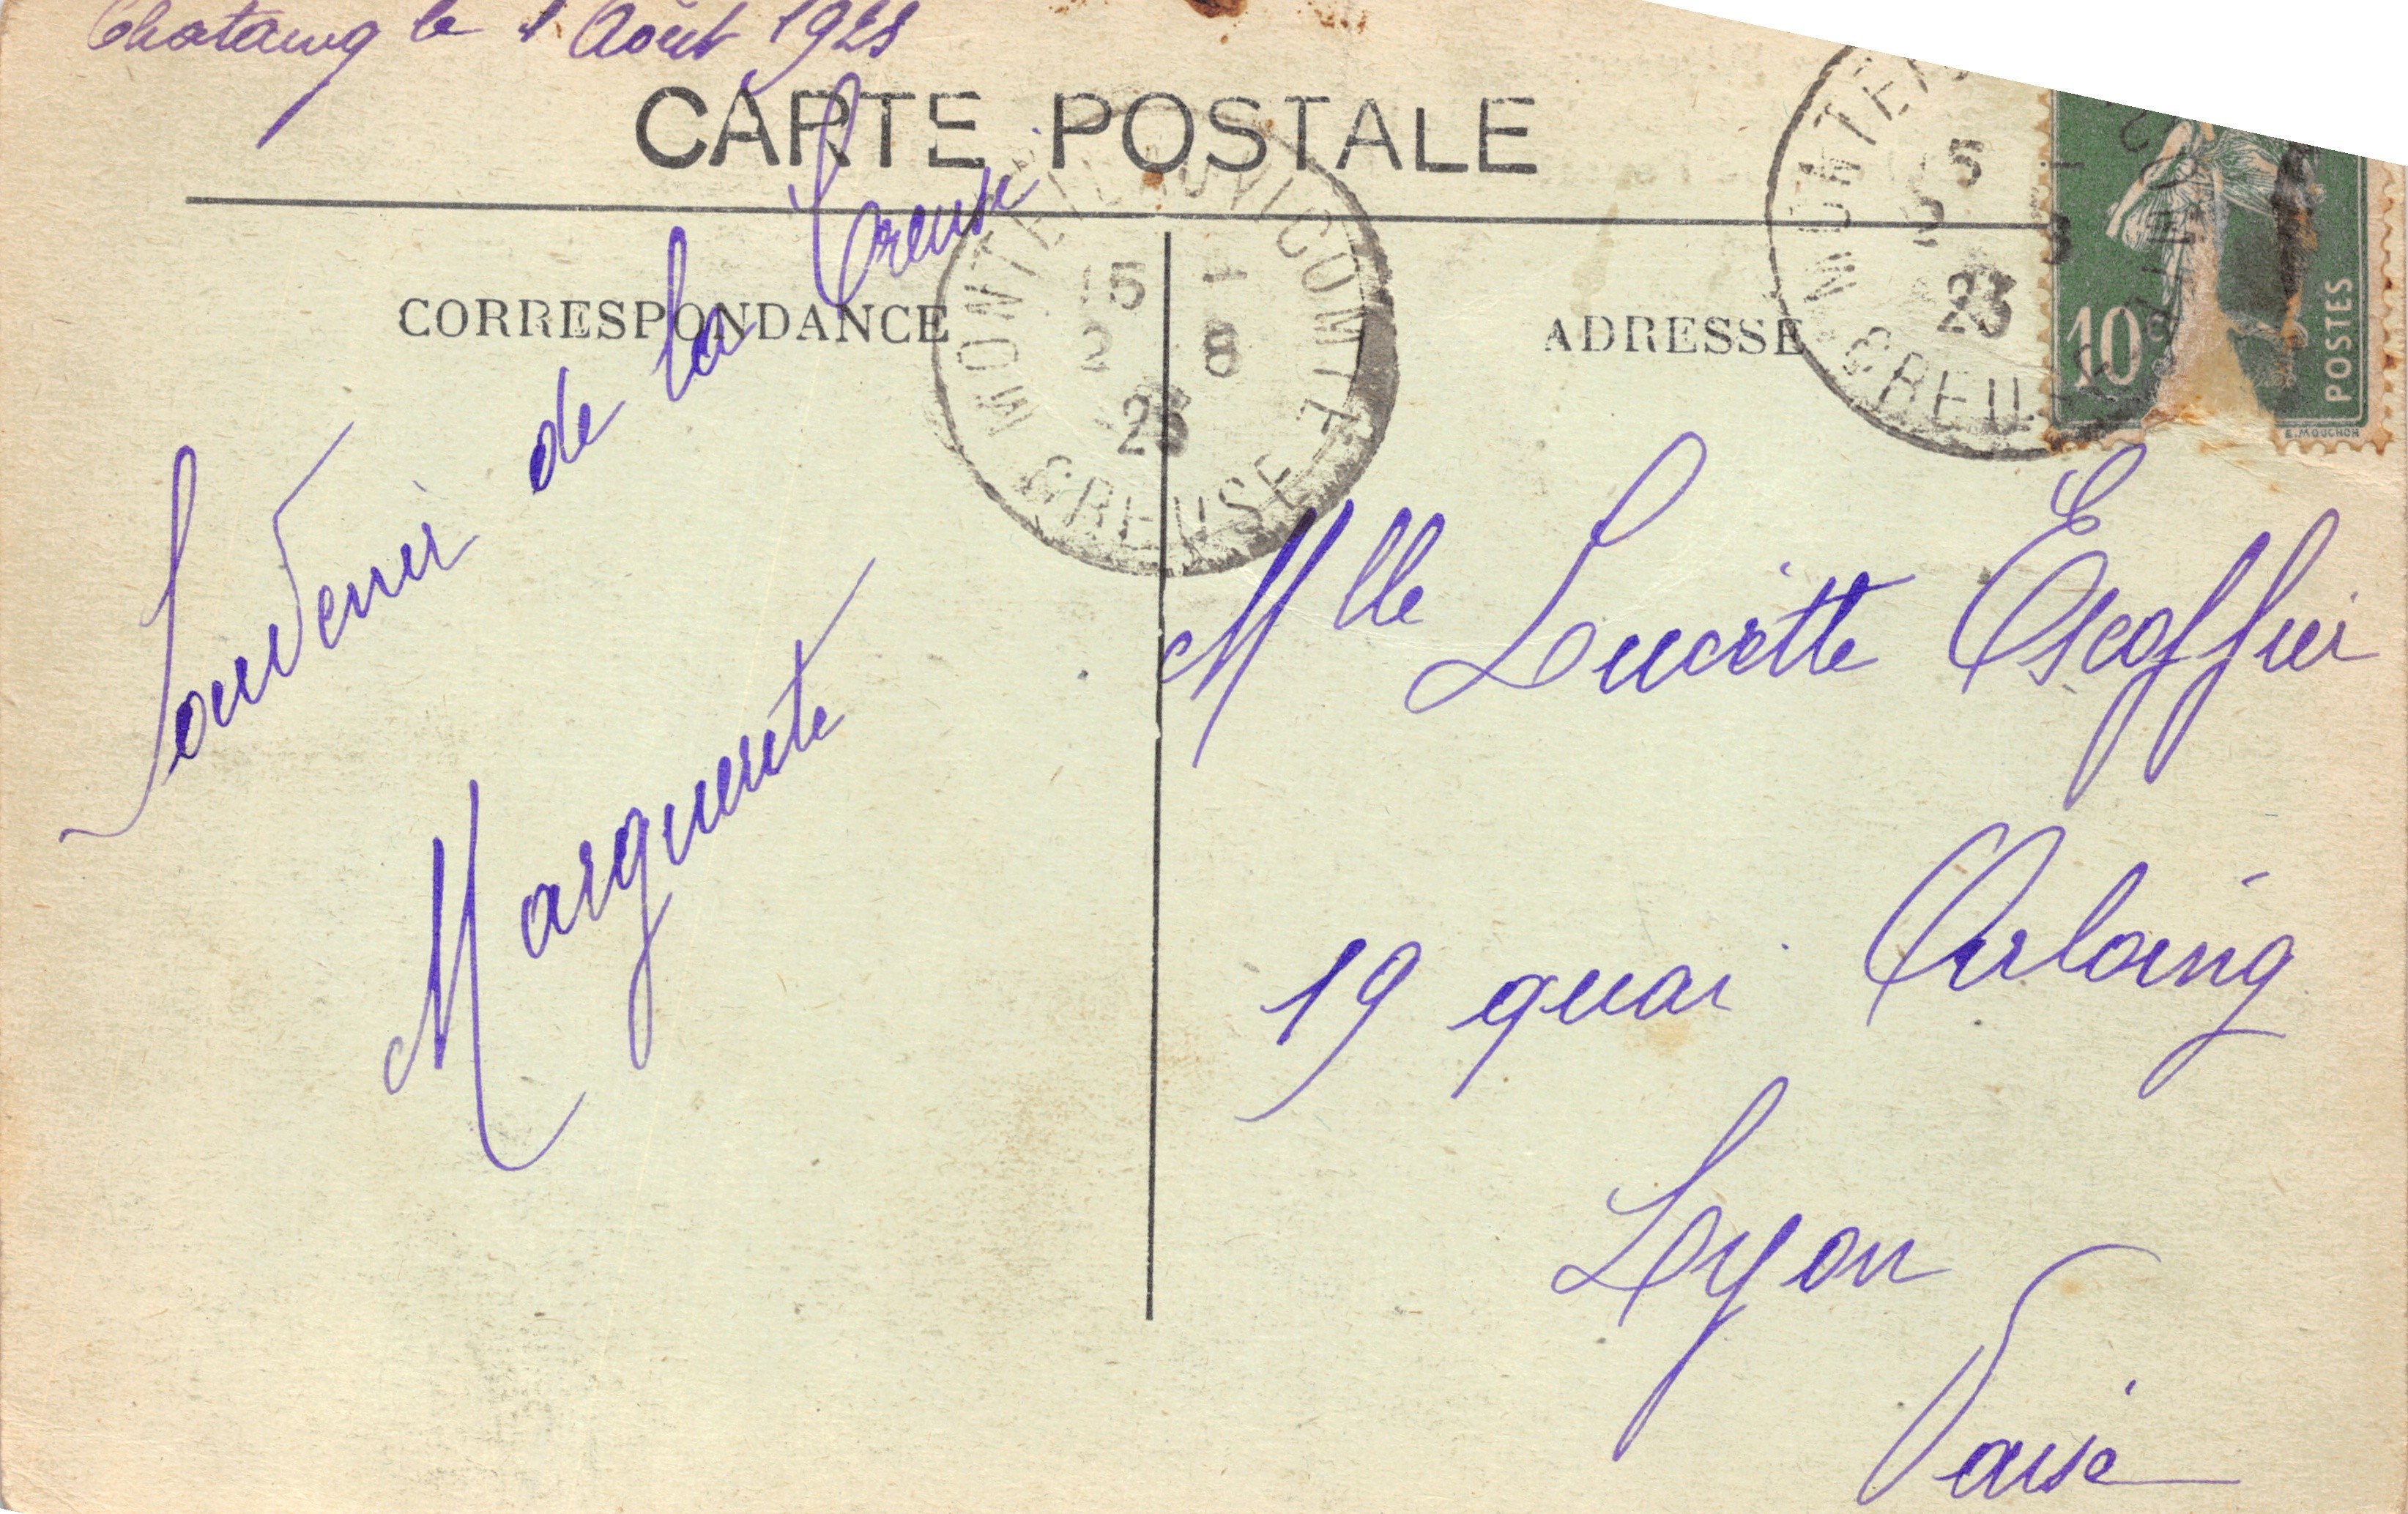 le 1 Août 1923
CARTE POSTALE
CORRESPONDANCE
ADRESSE
Souvenir de la Creuse
Marguerite
MONTEIL-AU-VICOMTE
15 -
2 8
23
CREUSE
MONTEI
15 -
2 8
23
CREUSE
10
POSTES
E. MOUCHON
Mlle Lucette Escoffier
19 quai Arloing
Lyon
Vaise